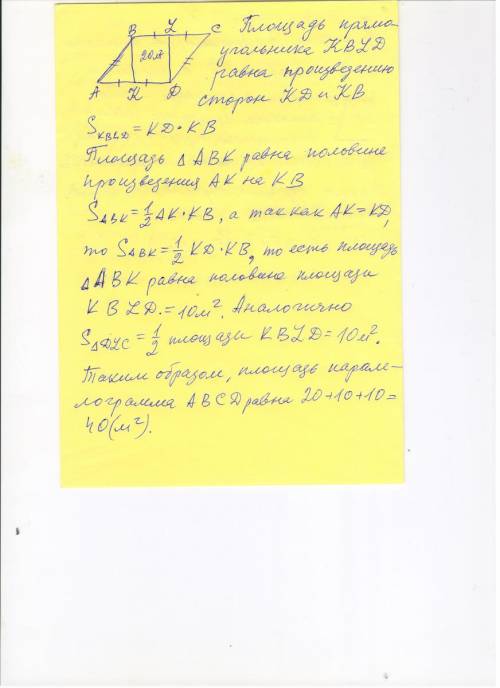 B L C Площадь прямо-
угольника KBLD
20м²
равна произведению
A K D
сторон KD и KB
S KBLD = KD·KB
Площадь △ABK равна половине
произведения AK на KB
S△ABK = 1/2 AK·KB, а так как AK=KD,
то S△ABK = 1/2 KD·KB, то есть площадь
△ABK равна половина площади
KBLD. = 10м². Аналогично
S△DLC = 1/2 площади KBLD = 10м².
Таким образом, площадь парале-
лограмма ABCD равна 20+10+10=
40(м²).